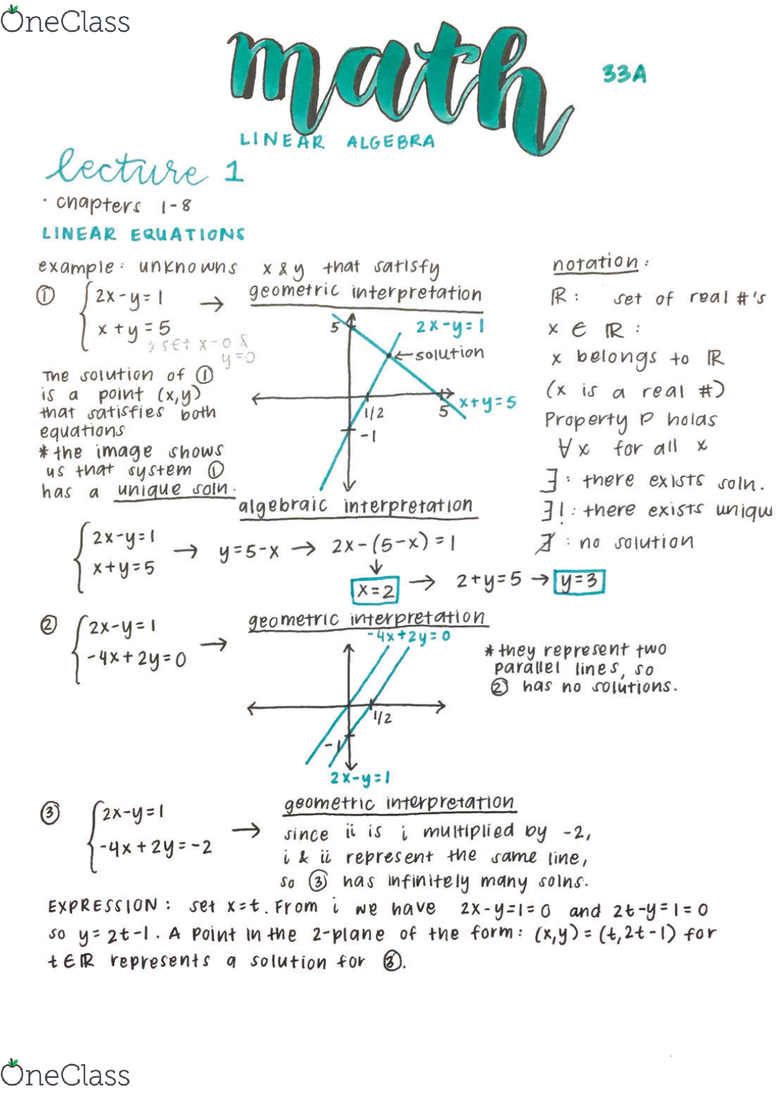 OneClass
math
33A
LINEAR ALGEBRA
lecture 1
· chapters 1-8
LINEAR EQUATIONS
example: unknowns x & y that satisfy
① { 2x-y=1 →
x+y=5
* set x=0 &
y=0
The solution of ①
is a point (x,y)
that satisfies both
equations
* the image shows
us that system ①
has a unique soln.
geometric interpretation
5
2x-y=1
←solution
1/2
5
x+y=5
-1
notation:
ℝ: set of real #'s
x ∈ ℝ:
x belongs to ℝ
(x is a real #)
Property P holds
∀x for all x
∃: there exists soln.
∃!: there exists uniqu
∄: no solution
algebraic interpretation
{ 2x-y=1
x+y=5
→ y=5-x → 2x-(5-x)=1
↓
x=2 → 2+y=5 → y=3
② { 2x-y=1 →
-4x+2y=0
geometric interpretation
-4x+2y=0
1/2
-1
2x-y=1
* they represent two
parallel lines, so
② has no solutions.
③ { 2x-y=1
-4x+2y=-2 →
geometric interpretation
since ii is i multiplied by -2,
i & ii represent the same line,
so ③ has infinitely many solns.
EXPRESSION: set x=t. From i we have 2x-y=1=0 and 2t-y=1=0
so y=2t-1. A point in the 2-plane of the form: (x,y)=(t,2t-1) for
t∈ℝ represents a solution for ③.
OneClass